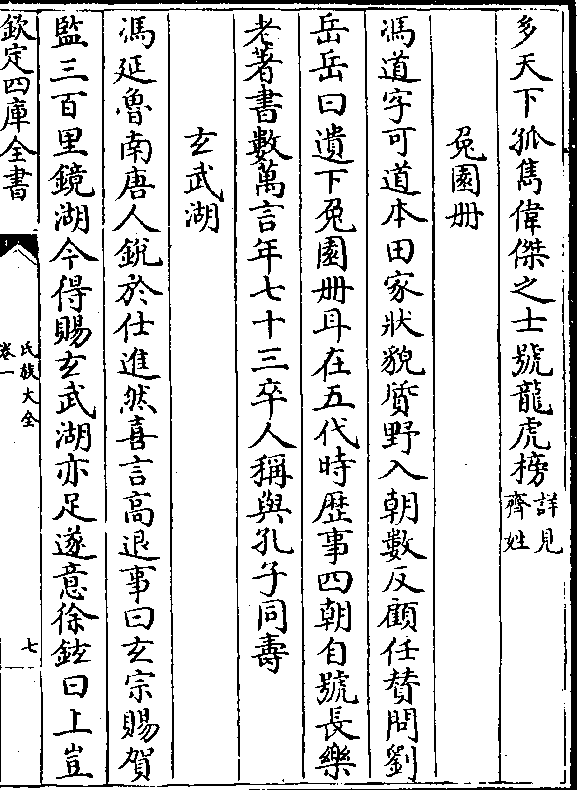 多天下孤雋偉傑之士號龍虎榜詳見齊姓
兔園册
馮道字可道本田家狀貌質野入朝數反顧任賛問劉
岳岳曰遺下兔園册耳在五代時歴事四朝自號長樂
老著書數萬言年七十三卒人稱與孔子同壽
玄武湖
馮延魯南唐人銳於仕進然喜言高退事曰玄宗賜賀
監三百里鏡湖今得賜玄武湖亦足遂意徐鉉曰上豈
欽定四庫全書
氏族大全
卷一
七